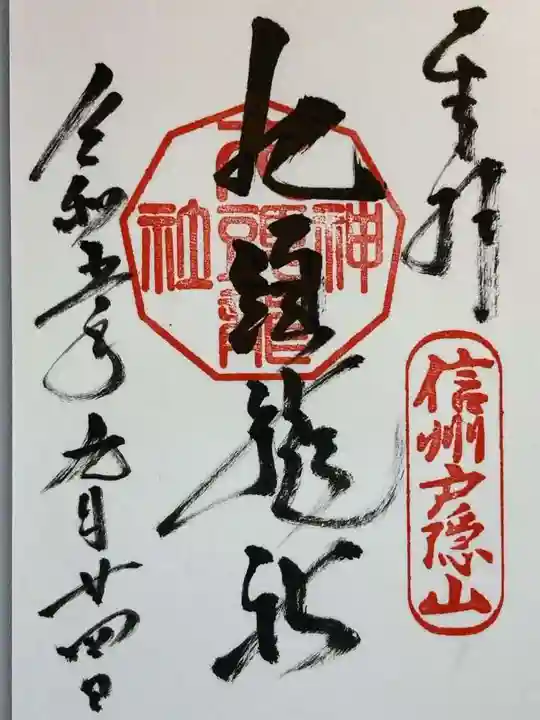 奉拝
信州戸隠山
九頭龍社
九頭龍
神
社
令和五年九月廿四日